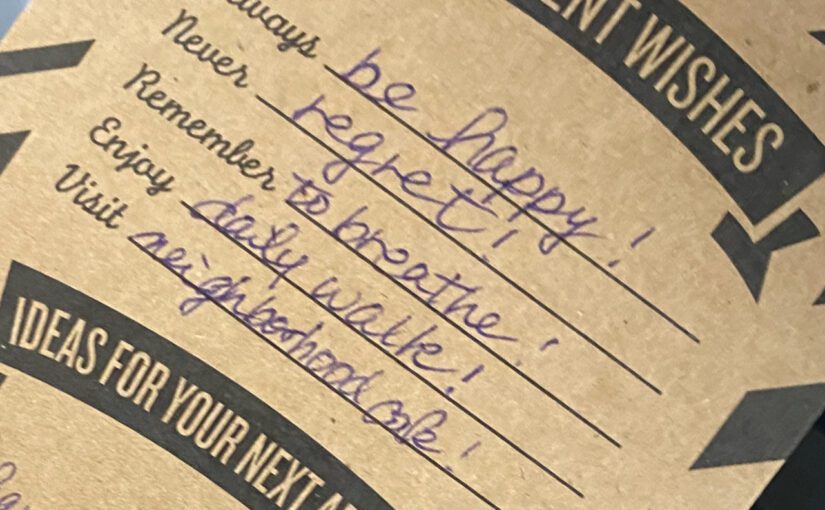 ENT WISHES
always be happy!
Never regret!
Remember to breathe!
Enjoy daily walk!
Visit neighborhood cafe!
IDEAS FOR YOUR NEXT A